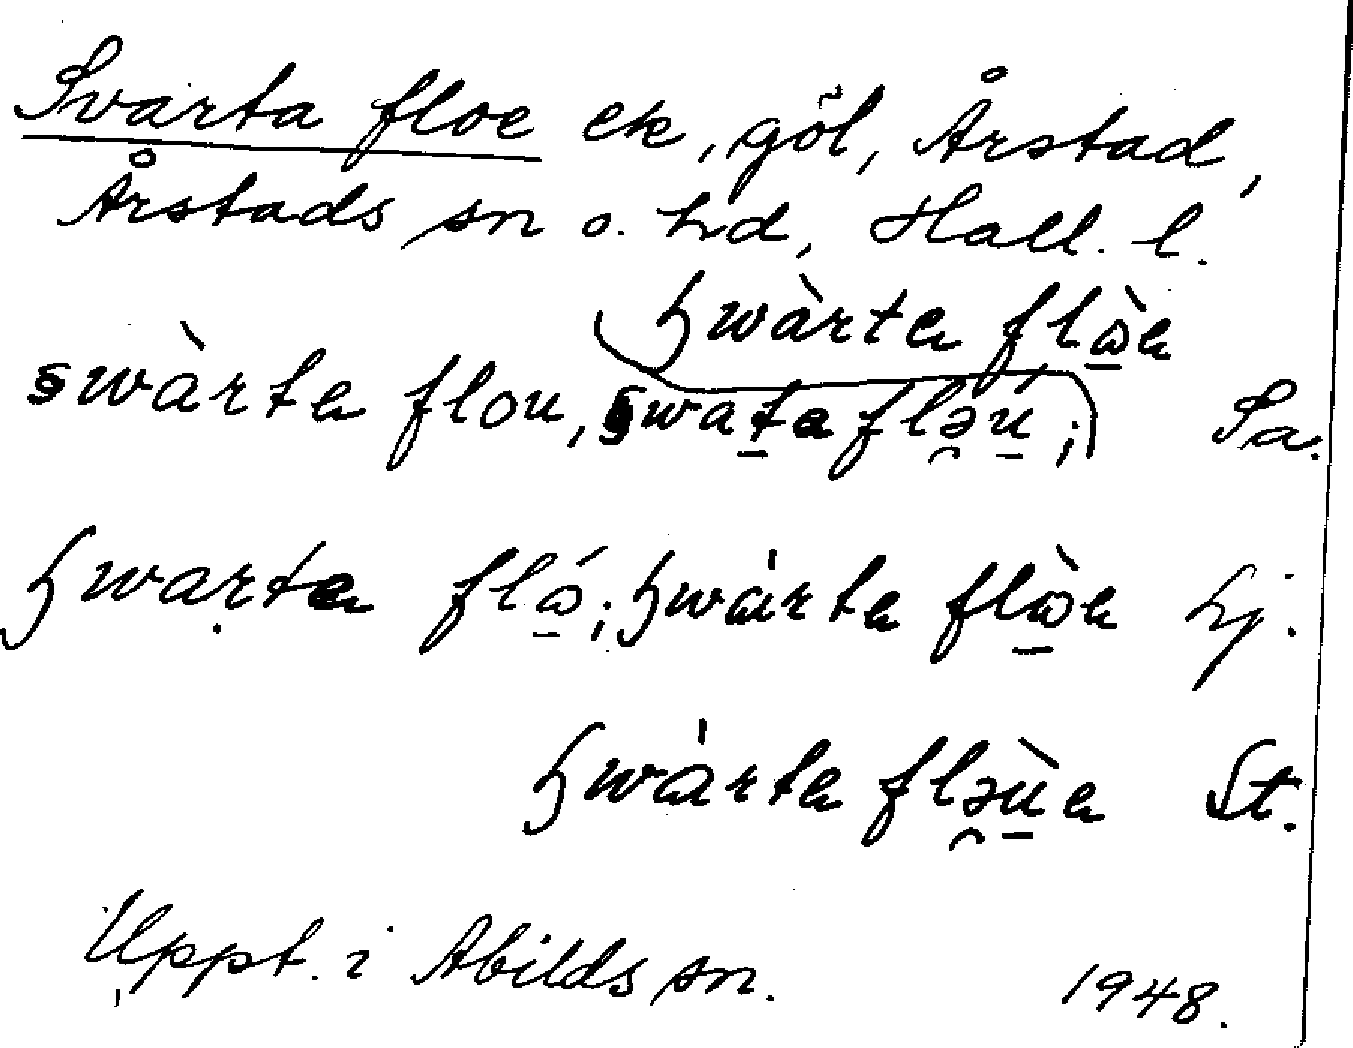 Svarta floe ek, göl, Årstad,
Årstads sn o. hd, Hall. l.
ʂwàrtɐ flὼ̲ɐ
swàrtɐ flou, swat̲a flə̯ú̲; Sa.
ʂwạrtɐ flώ̲; ʂwàrtɐ flὼ̲ɐ Lj.
ʂwàrtɐ flə̯ù̲ɐ St.
Uppt. i Abilds sn. 1948.